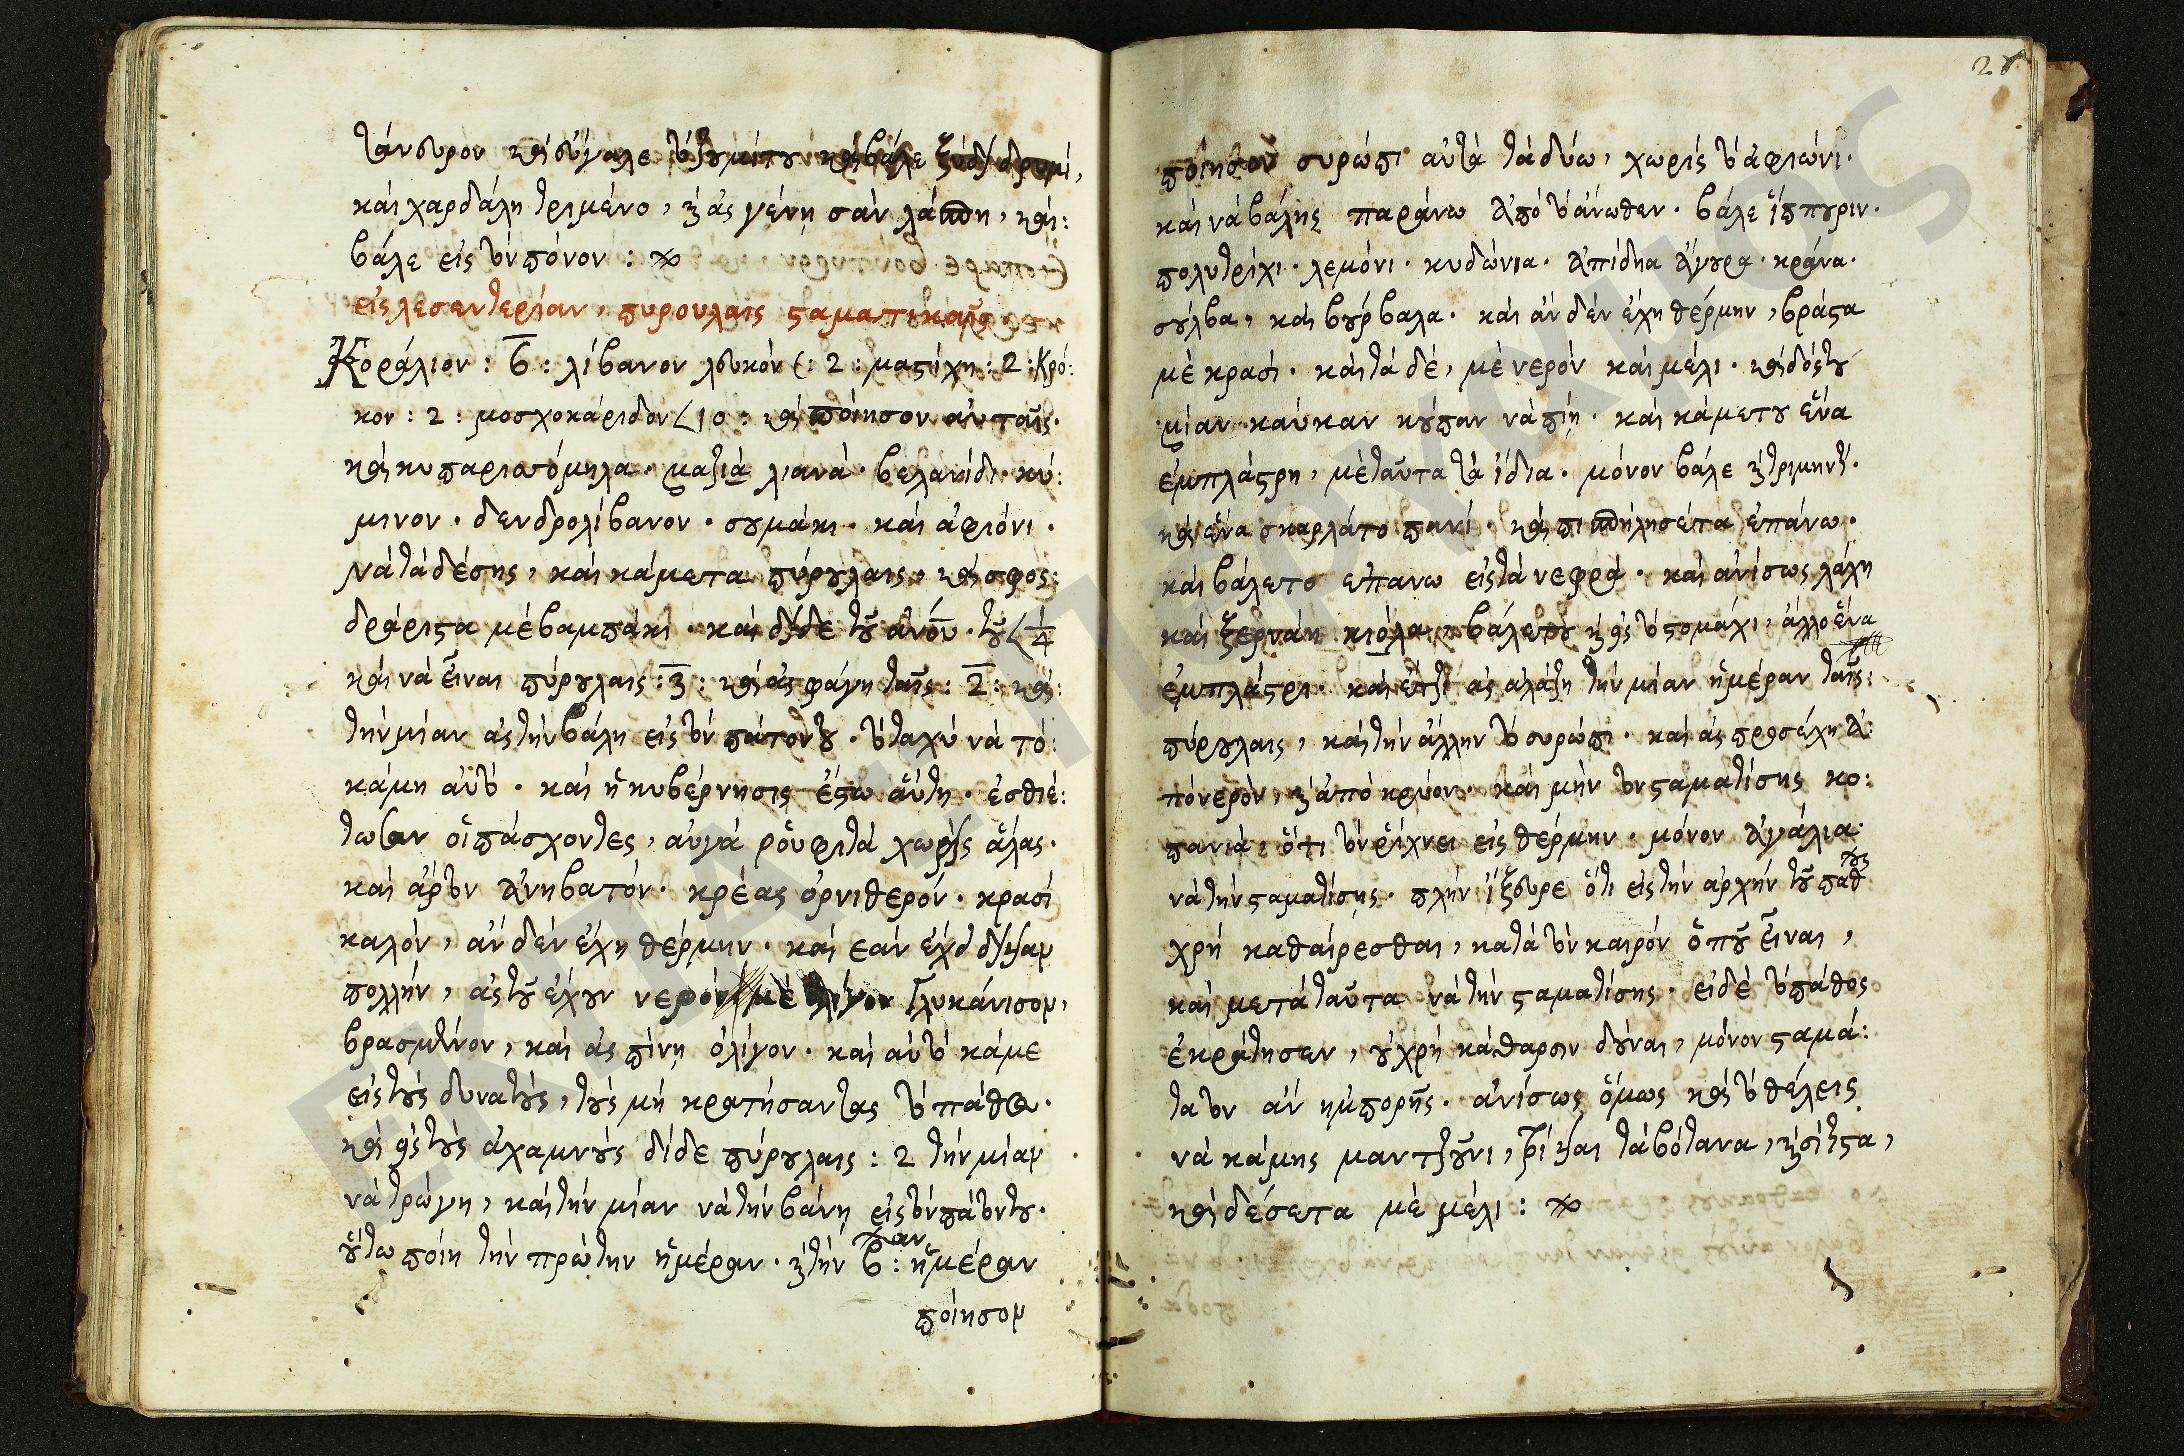 καὶ χαρδάλη τριμένο, καὶ ἂς γένη σὰν λάπη, καὶ:
βάλε εἰς τὸν πόνον :
εἰς λεσεντερίαν, πυρουλαις σαματικαῖς
Κοράλιον : Ϛ : λίβανον λευκόν : 2 : μαστίχη : 2 : Κρό:
κον : 2 : μοσχοκάριδον 10 : καὶ ποίησον αὐταῖς.
καὶ κυπαρισόμηλα. μαζιὰ λιανά. βελανίδι. κύ:
μινον. δενδρολίβανον. σουμάκι. καὶ ἀφιόνι.
Νὰ τὰ δέσης, καὶ κάμετα πύρουλαις, καὶ σφος:
δράριστα μὲ βαμπάκι. καὶ δίδε τοῦ ἀνοῦ. τοῦ 1/4
καὶ νὰ εἶναι πύρουλαις : 3 : καὶ ἂς φάγη ταῖς : 2 : καὶ:
τὴν μίαν ἂς τὴν βάλη εἰς τὸν πάτον του. τὸ ταχὺ νὰ τό:
κάμη αὐτό. καὶ ἡ κυβέρνησις ἔστω αὕτη. ἐσθιέ:
τωσαν οἱ πάσχοντες, αὐγὰ ῥουφιτὰ χωρὶς ἅλας.
καὶ ἄρτον ἀνηβατόν. κρέας ὀρνιθερόν. κρασὶ
καλόν, ἂν δὲν ἔχη θέρμην. καὶ ἐὰν ἔχει δίψαν
πολλήν, ἂς τοῦ ἔχουν νερὸν μὲ λίγον γλυκάνισον,
βρασμένον, καὶ ἂς πίνη ὀλίγον. καὶ αὐτὸ κάμε
εἰς τοὺς δυνατούς, τοὺς μὴ κρατήσαντας τὸ πάθος.
καὶ εἰς τοὺς ἀχαμνοὺς δίδε πύρουλαις : 2 τὴν μίαν
νὰ τρώγη, καὶ τὴν μίαν νὰ τὴν βάνη εἰς τὸν πάτον του.
οὕτω ποίη τὴν πρώτην ἡμέραν. καὶ τὴν Ϛ : ἡμέραν
ποίησον
ποίησον συρώπι αὐτὰ τὰ δύω, χωρὶς τὸ ἀφιώνι.
καὶ νὰ βάλης παράνω ἀπὸ τὸ ἄνωθεν. βάλε
πολυτρίχι. λεμόνι. κυδώνια. ἀπίδηα ἄγουρα. κράνα.
σούλβα, καὶ βούρβαλα. καὶ ἂν δὲν ἔχη θέρμην, βράστα
μὲ κρασί. καὶ τὰ δέ, μὲ νερὸν καὶ μέλι. καὶ δός του
μίαν καύκαν κούπαν νὰ πίη. καὶ κάμε του ἕνα
ἐμπλάστρη, μὲ ταῦτα τὰ ἴδια. μόνον βάλε
καὶ ἕνα σκαρλάτο πανί. καὶ ἐπάνω.
καὶ βάλετο ἐπάνω εἰς τὰ νεφρά. καὶ ἀνίσως λάχη
καὶ ξερνάη κιόλα, βάλε του καὶ εἰς τὸ στομάχι, ἄλλο ἕνα
ἐμπλάστρι. καὶ ἔτζι ἂς ἀλάξη τὴν μίαν ἡμέραν ταῖς:
πύρουλαις, καὶ τὴν ἄλλην τὸ συρώπι. καὶ ἂς προσέχη ἀ:
πὸ νερόν, καὶ ἀπὸ κρύον. καὶ μὴν τὸν σταματίσης κο:
πανιά, ὅτι τὸν ῥίχνει εἰς θέρμην. μόνον ἀγάλια
νὰ τὴν σταματίσης. πλὴν ἴξευρε ὅτι εἰς τὴν ἀρχὴν τοῦ πάθους
χρὴ καθαίρεσθαι, κατὰ τὸν καιρὸν ὁποῦ εἶναι,
καὶ μετὰ ταῦτα νὰ τὴν σταματίσης. εἰδὲ τὸ πάθος
ἐκράτησεν, οὐ χρὴ κάθαρσιν δοῦναι, μόνον σταμά:
τα τον ἂν ἠμπορῆς. ἀνίσως ὅμως καὶ τὸ θέλεις
νὰ κάμης μαντζοῦνι, τρίψαι τὰ βότανα, καὶ σίτιστα,
καὶ δέσετα μὲ μέλι :